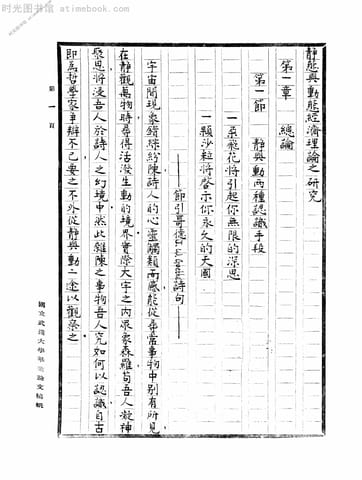 时光图书馆 - atimebook.com
静態與動態經濟理論之研究
第一章　總論
第一節　静與動兩種認識手段
一朵飛花將引起你無限的深思
一顆沙粒將啓示你永久的天國
——節引哥德詩句——
宇宙間現象錯綜紛陳詩人的心靈觸類而應能從尋常事物中別有所見
在静觀萬物時尋得活潑生動的境界實際大宇之内衆象森羅苟吾人凝神
聚思將浸吾人於詩人之幻境中然此雜陳之事物吾人究如何以認識自古
即為哲學家爭辯不已要之不外從静與動二途以觀察之
第一頁
國立武漢大學畢業論文稿紙